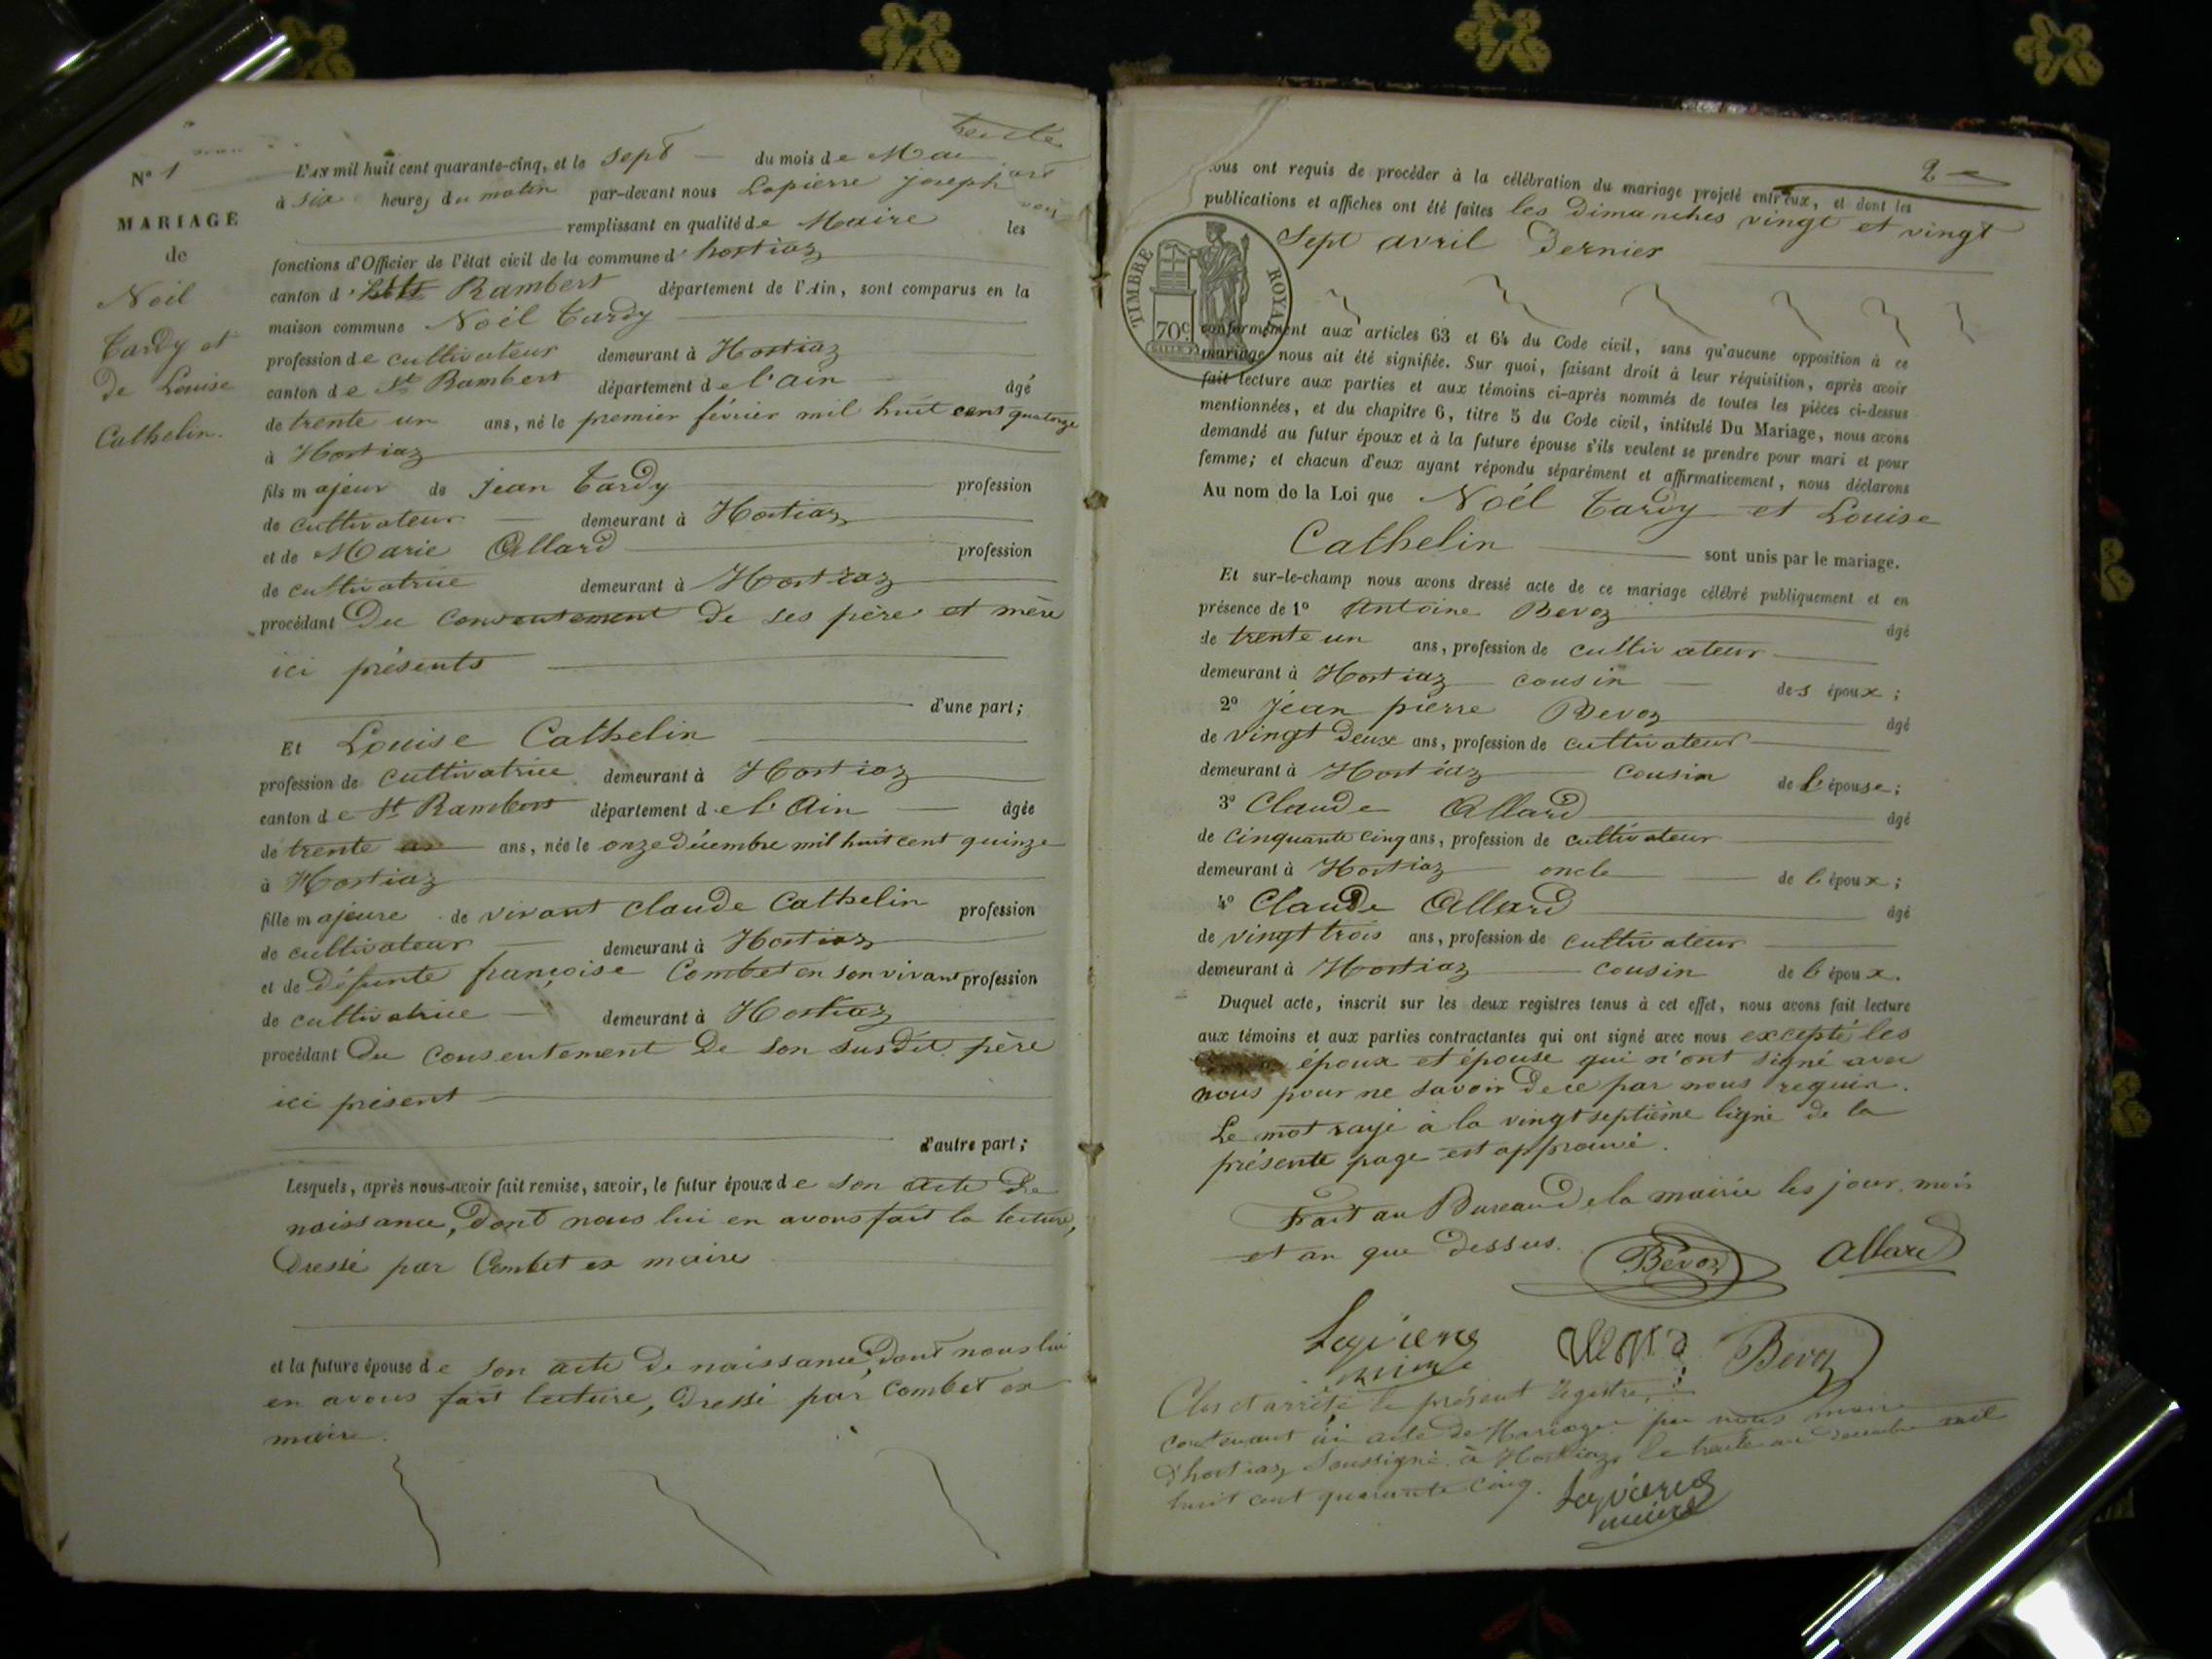 N° 1
MARIAGE
de
Noël
Tardy et
De Louise
Cathelin.
L'AN mil huit cent quarante-cinq, et le sept du mois de Mai
à six heures du matin par-devant nous Lapierre joseph
remplissant en qualité de Maire les
fonctions d'Officier de l'état civil de la commune d'hostiaz
canton d Rambert département de l'Ain, sont comparus en la
maison commune Noël Tardy
profession de cultivateur demeurant à Hostiaz
canton de St Rambert département de l'ain âgé
de trente un ans, né le premier février mil huit cent quatorze
à Hostiaz
fils majeur de jean Tardy profession
de cultivateur demeurant à Hostiaz
et de Marie Allard profession
de cultivatrice demeurant à Hostiaz
procédant Du consentement De ses père et mère
ici présents
d'une part;
Et Louise Cathelin
profession de cultivatrice demeurant à Hostiaz
canton de St Rambert département de l'Ain âgée
de trente ans, née le onze Décembre mil huit cent quinze
à Hostiaz
fille majeure de vivant Claude Cathelin profession
de cultivateur demeurant à Hostiaz
et de Défunte françoise Combet en son vivant profession
de cultivatrice demeurant à Hostiaz
procédant Du consentement De son susdit père
ici présent
d'autre part;
Lesquels, après nous avoir fait remise, savoir, le futur époux de son acte De
naissance, Dont nous lui en avons fait la lecture,
Dressé par Combet ex maire
et la future épouse de son acte De naissance, Dont nous lui
en avons fait lecture, Dressé par Combet ex
maire.
2e
nous ont requis de procéder à la célébration du mariage projeté entr'eux, et dont les
publications et affiches ont été faites les Dimanches vingt et vingt
Sept avril Dernier
TIMBRE ROYAL
70c.
conformément aux articles 63 et 64 du Code civil, sans qu'aucune opposition à ce
mariage nous ait été signifiée. Sur quoi, faisant droit à leur réquisition, après avoir
fait lecture aux parties et aux témoins ci-après nommés de toutes les pièces ci-dessus
mentionnées, et du chapitre 6, titre 5 du Code civil, intitulé Du Mariage, nous avons
demandé au futur époux et à la future épouse s'ils veulent se prendre pour mari et pour
femme; et chacun d'eux ayant répondu séparément et affirmativement, nous déclarons
Au nom de la Loi que Noël Tardy et Louise
Cathelin sont unis par le mariage.
Et sur-le-champ nous avons dressé acte de ce mariage célébré publiquement et en
présence de 1° Antoine Bevoz âgé
de trente un ans, profession de cultivateur
demeurant à Hostiaz cousin des époux;
2° jean pierre Bevoz âgé
de vingt Deux ans, profession de cultivateur
demeurant à Hostiaz cousin de l'épouse;
3° Claude Allard âgé
de cinquante cinq ans, profession de cultivateur
demeurant à Hostiaz oncle de l'époux;
4° Claude Allard âgé
de vingt trois ans, profession de cultivateur
demeurant à Hostiaz cousin de l'époux.
Duquel acte, inscrit sur les deux registres tenus à cet effet, nous avons fait lecture
aux témoins et aux parties contractantes qui ont signé avec nous excepté les
époux et épouse qui n'ont signé avec
nous pour ne savoir De ce par nous requis.
Le mot rayé à la vingt septième ligne de la
présente page est approuvé.
Fait au Bureau De la mairie les jour, mois
et an que dessus. Bevoz Allard
Lapierre
maire
Bevoz
Clos et arrêté le présent registre,
contenant un acte de Mariage par nous maire
d'hostiaz soussigné à Hostiaz, le trente un décembre mil
huit cent quarante cinq. Lapierre
maire